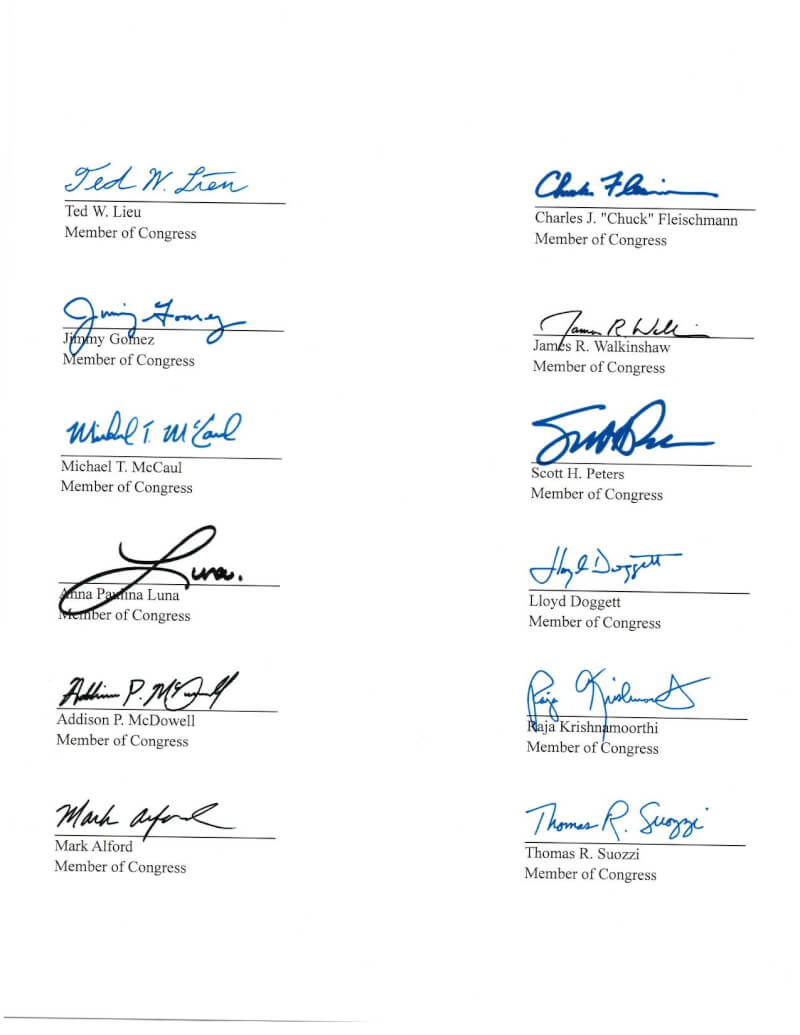 Ted W. Lieu
Ted W. Lieu
Member of Congress
Jimmy Gomez
Jimmy Gomez
Member of Congress
Michael T. McCaul
Michael T. McCaul
Member of Congress
Luna.
Anna Paulina Luna
Member of Congress
Addison P. McDowell
Addison P. McDowell
Member of Congress
Mark Alford
Mark Alford
Member of Congress
Chuck Fleischmann
Charles J. "Chuck" Fleischmann
Member of Congress
James R. Walkinshaw
James R. Walkinshaw
Member of Congress
Scott H. Peters
Member of Congress
Lloyd Doggett
Lloyd Doggett
Member of Congress
Raja Krishnamoorthi
Raja Krishnamoorthi
Member of Congress
Thomas R. Suozzi
Thomas R. Suozzi
Member of Congress